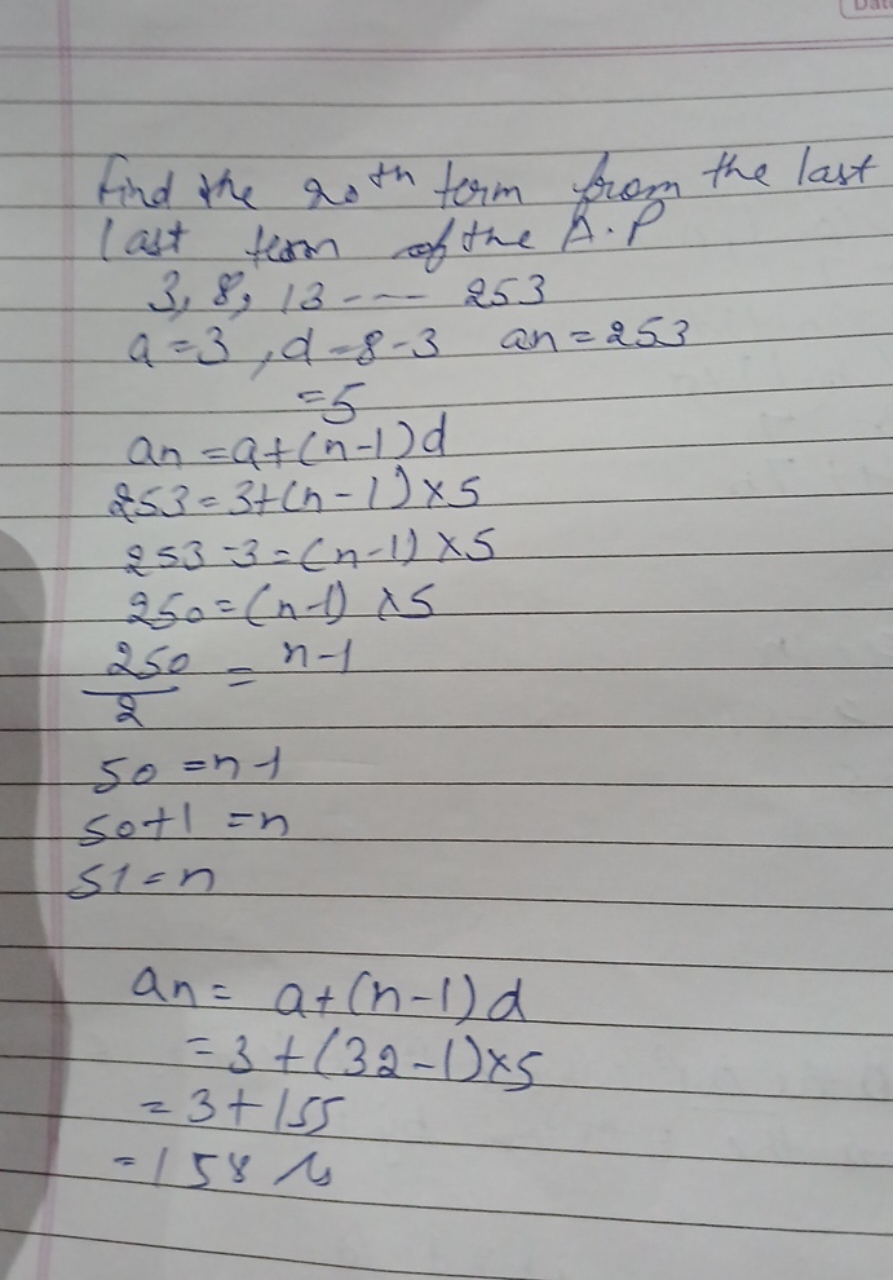 Find the 20th term from the last
last term of the A.P
3, 8, 13 --- 253
a=3, d=8-3 an=253
=5
an=a+(n-1)d
253=3+(n-1)×5
253-3=(n-1)×5
250=(n-1)×5
250/2 = n-1
50=n-1
50+1=n
51=n
an= a+(n-1)d
=3+(32-1)×5
=3+155
=158